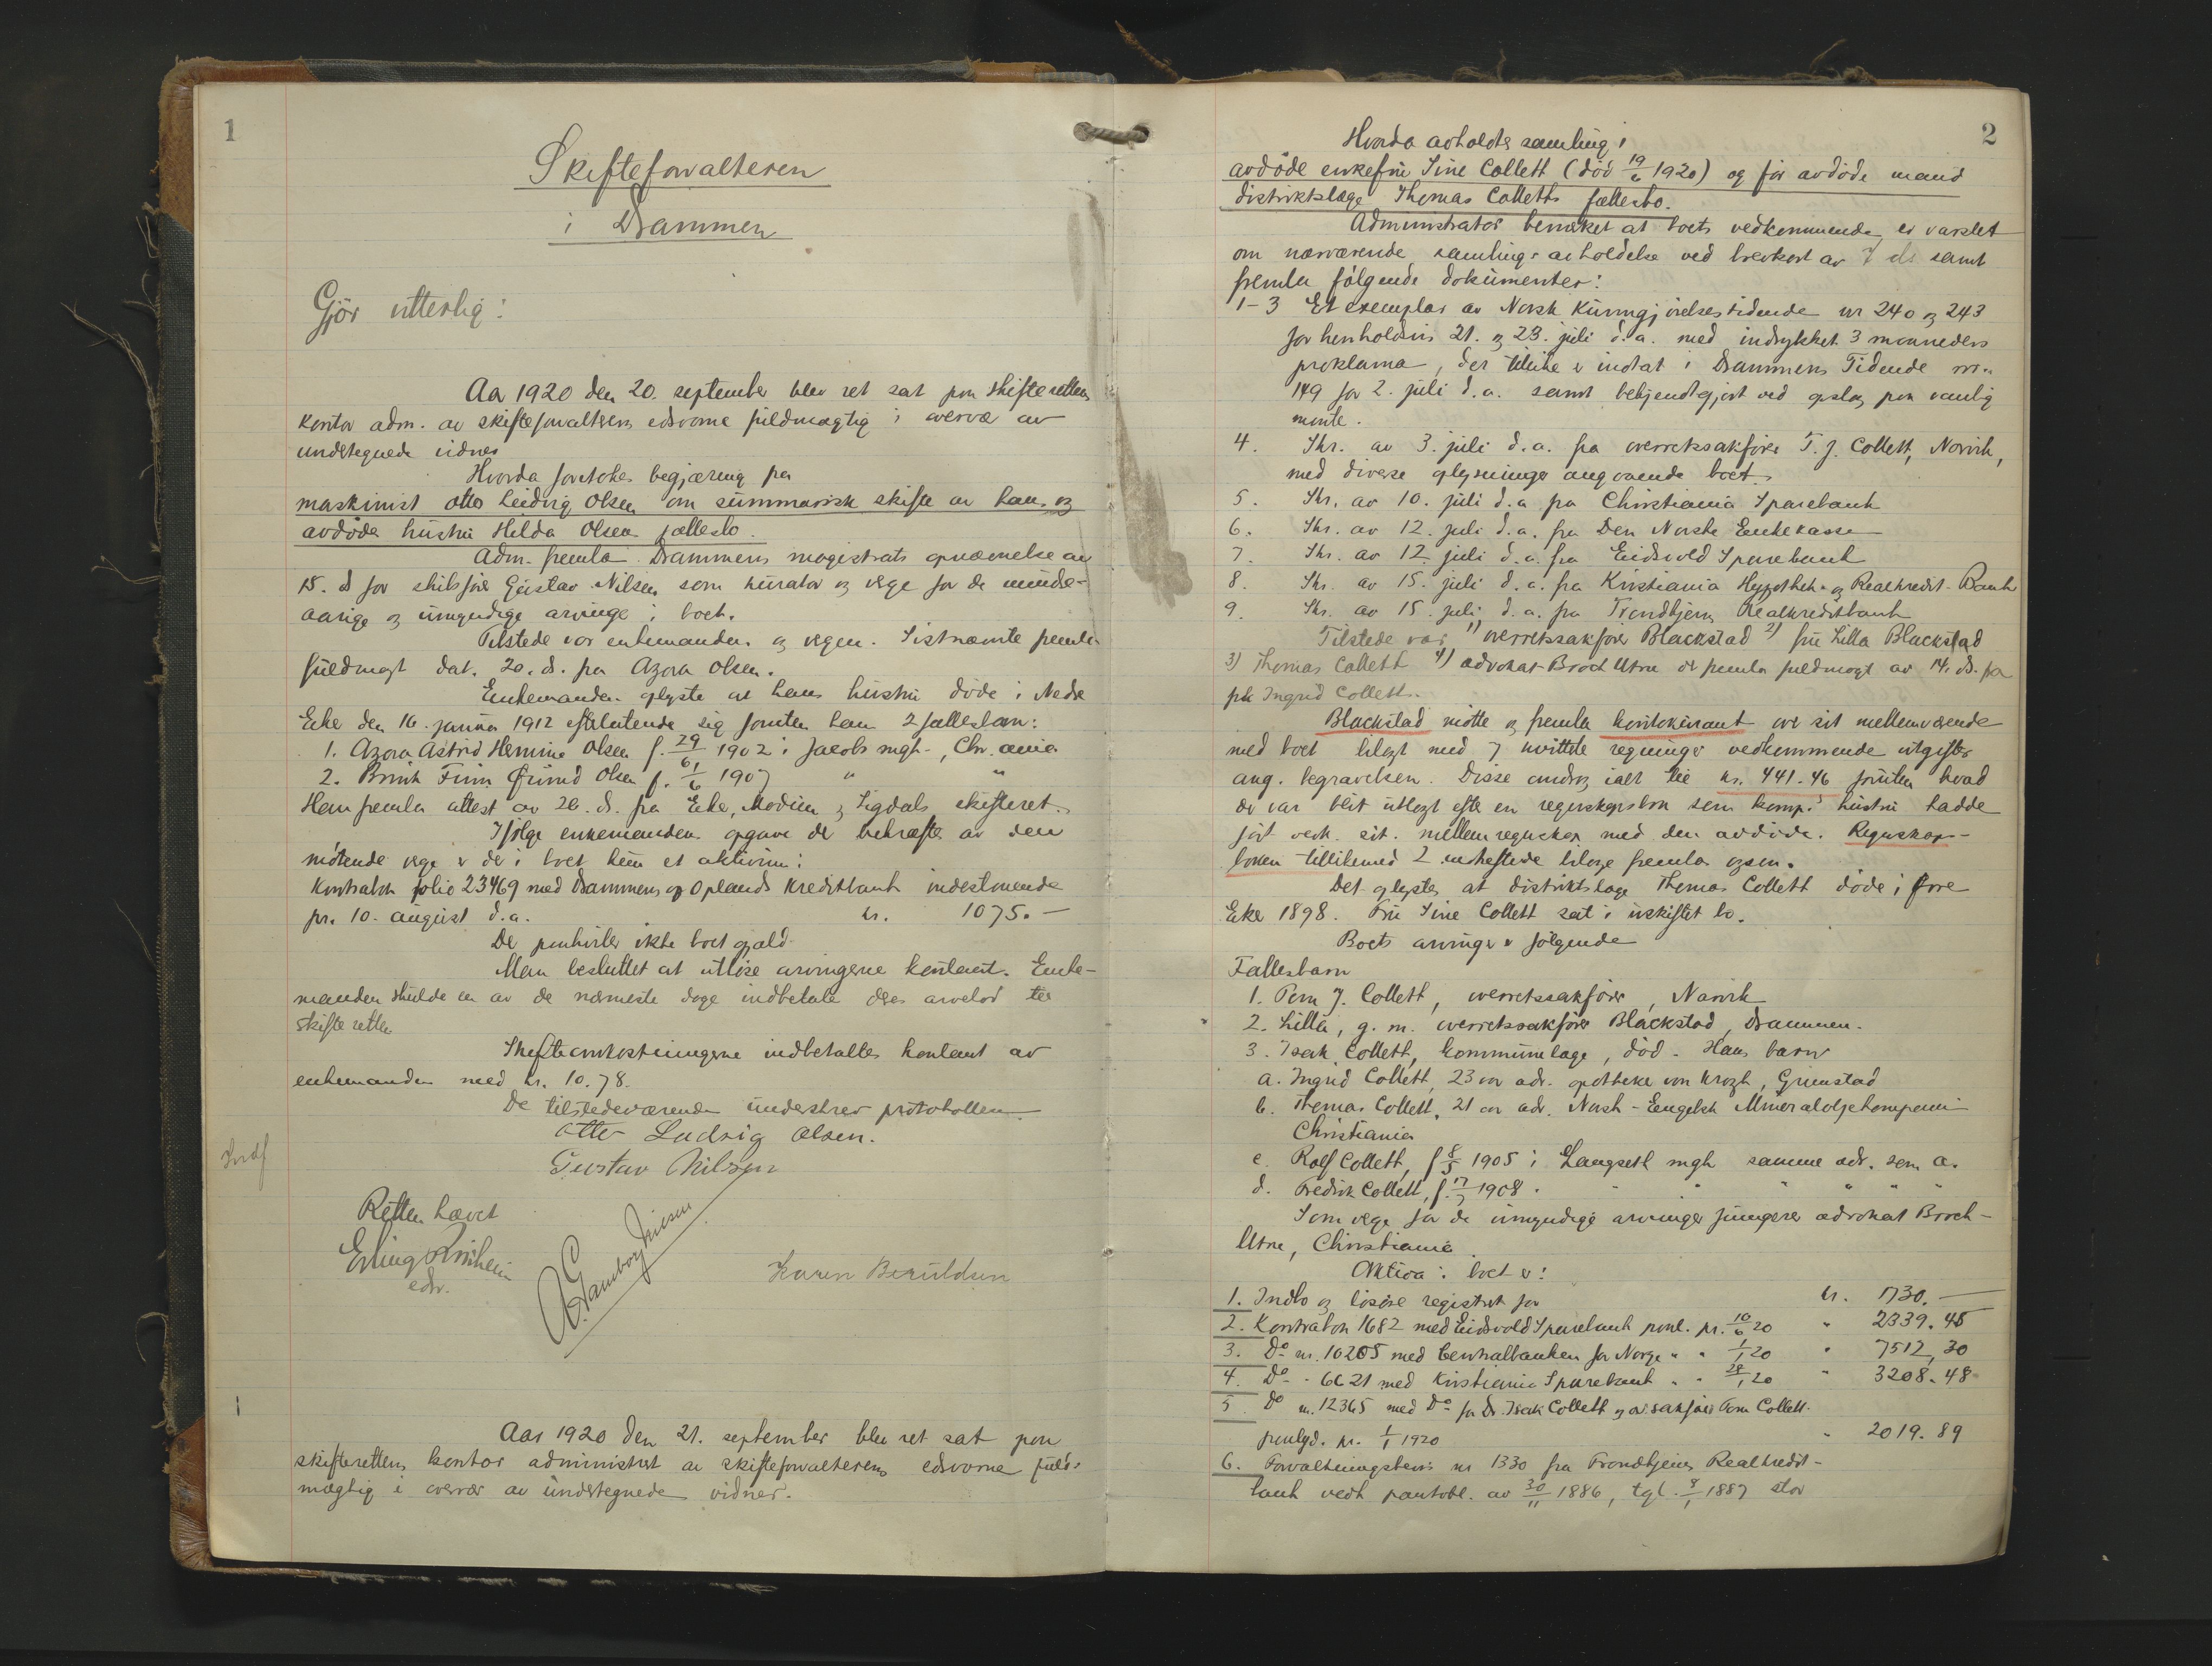 1
Skifteforvalteren
i Drammen
Gjör vitterlig:
Aar 1920 den 20. september blev ret sat paa skifterettens
kontor adm. av skifteforvalterens edsvorne fuldmægtig i overvær av
undertegnede vidner
Hvorda foretokes begjæring fra
maskinist Otto Ludvig Olsen om summarisk skifte av hans og
avdöde hustru Hilda Olsens fællesbo.
Adm. fremla Drammens magistrats opnævnelse av
15. ds for skibsförer Gustav Nilsen som kurator og verge for de minde-
aarige og umyndige arvinge i boet.
Tilstede var enkemanden og vergen. Sistnævnte fremla
fuldmagt dat. 20. ds. fra Azora Olsen.
Enkemanden oplyste at hans hustru döde i Nedre
Eker den 16. januar 1912 efterlatende sig foruten ham 2 fællesbarn:
1. Azora Astrid Hermine Olsen f. 29/6 1902 i Jacobs mgh., Chr.ania
2. Brink Finn Öivind Olsen f. 1/6 1907 " "
Han fremla attest av 20. ds. fra Eker, Modum og Sigdals skifteret.
Ifölge enkemandens opgave der bekræftes av den
mötende verge er der i boet kun et aktivum:
Kontrabok folio 23469 med Drammens og Oplands Kreditbank indestaaende
pr. 10. august d.a. kr. 1075.—
Der paahviler ikke boet gjæld.
Man besluttet at utlöse arvingerne kontant. Enke-
manden skulde en av de nærmeste dage indbetale deres arvelod til
skifteretten
Skifteomkostningerne indbetaltes kontant av
enkemanden med kr. 10.78.
De tilstedeværende underskrev protokollen
Otto Ludvig Olsen.
Gustav Nilsen
Retten hævet
Erling
edsv.
Karen Beruldsen
Aar 1920 den 21. september blev ret sat paa
skifterettens kontor administrert av skifteforvalterens edsvorne fuld-
mægtig i overvær av undertegnede vidner.
2
Hvorda avholdtes samling i
avdöde enkefru Sine Collett (död 19/6 1920) og för avdöde mand
distriktslæge Thomas Colletts fællesbo.
Administrator bemerket at boets vedkommende er varslet
om nærværende samlings avholdelse ved brevkort av 7 ds samt
fremla fölgende dokumenter:
1-3 Et exemplar av Norsk Kunngjörelsestidende nr 240 og 243
for henholdsvis 21. og 23. juli d.a. med indrykket 3 maaneders
proklama, der tillike er indtat i Drammens Tidende nr.
149 for 2. juli d.a. samt bekjendtgjort ved opslag paa vanlig
maate.
4. Skr. av 3. juli d.a. fra overretssakförer T. J. Collett, Narvik,
med diverse oplysninger angaaende boet.
5. Skr. av 10. juli d.a fra Christiania Sparebank
6. Skr. av 12. juli d.a. fra Den Norske Enkekasse
7. Skr. av 12 juli d.a. fra Eidsvold Sparebank
8. Skr. av 15. juli d.a. fra Kristiania Hypothek- og Realkredit-Bank
9. Skr. av 15. juli d.a. fra Trondhjems Realkreditbank
Tilstede var 1) overretssakförer Blackstad 2) fru Lilla Blackstad
3) Thomas Collett 4) advokat Broch Utne der fremla fuldmagt av 14. ds. fra
frk Ingrid Collett.
Blackstad mötte og fremla kontokurant over sit mellemværende
med boet bilagt med 7 kvitterte regninger vedkommende utgifter
ang. begravelsen. Disse androg ialt til kr. 441.46 foruten hvad
der var blit utlagt efter en regnskapsbok som komp.s hustru hadde
fört vedk. sit mellemregnskap med den avdöde. Regnskaps-
boken tillikemed 2 vedheftede bilage fremla ogsaa.
Det oplystes at distriktslæge Thomas Collett döde i Övre
Eker 1898. Fru Sine Collett sat i uskiftet bo.
Boets arvinger er fölgende
Fællesbarn
1. Tom J. Collett, overretssakförer, Narvik
2. Lilla, g. m. overretssakförer Blackstad, Drammen.
3. Isak Collett, kommunelæge, död. Hans barn
a. Ingrid Collett, 23 aar adr. apotheker von Krogh, Grimstad
b. Thomas Collett, 21 aar adr. Norsk-Engelsk Mineraloljekompani
Christiania
c. Rolf Collett, f 8/5 1905 i Langseth mgh samme adr. som a.
d. Fredrik Collett, f. 17/7 1908 " " " " " "
Som verge for de umyndige arvinger fungerer advokat Broch-
Utne, Christiania.
Aktiva i boet er:
1. Indbo og lösöre registrert for kr. 1730.—
2. Kontrabok 1682 med Eidsvold Sparebank paal. pr. 10/6 20 " 2339.45
3. Do nr. 10205 med Centralbanken for Norge " " 1/1 20 " 7512,30
4. Do - 6621 med Kristiania Sparebank " " 28/1 20 " 3208.48
5. Do nr. 12365 med Do for Dr. Isak Collett og o.r.sakförer Tom Collett.
paalyd. pr. 1/1 1920 " 2019.89
6. Forvaltningsbevis nr 1330 fra Trondhjems Realkredit-
bank vedk pantobl. av 30/11 1886, tgl. 8/1 1887 stor